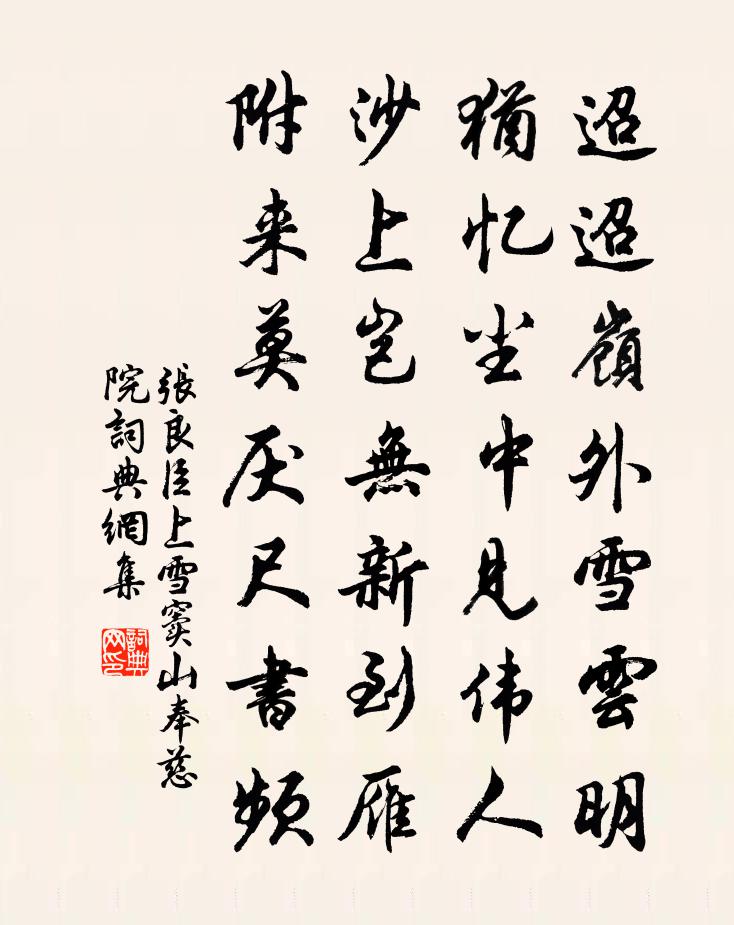 迢迢嶺外雪雲明
猶忆坐中見伟人
沙上岂無新到雁
附来莫厌尺書頻
張良臣上雪竇山奉慈
院詞典網集
詞典网印